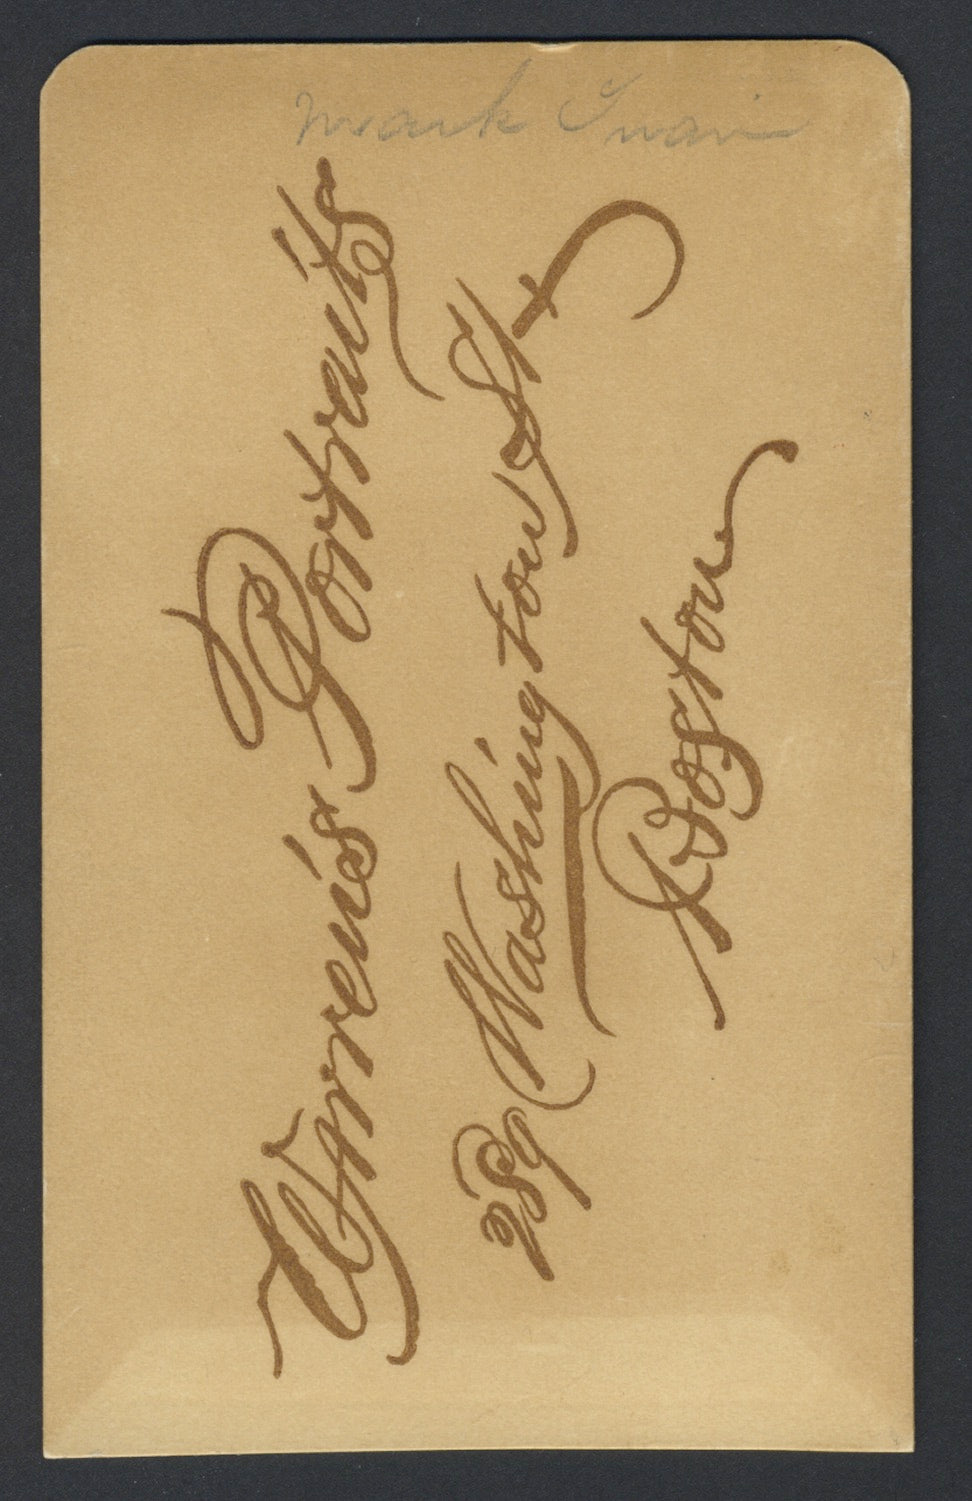 Mark Twain
Warren's Portraits
289 Washington St
Boston